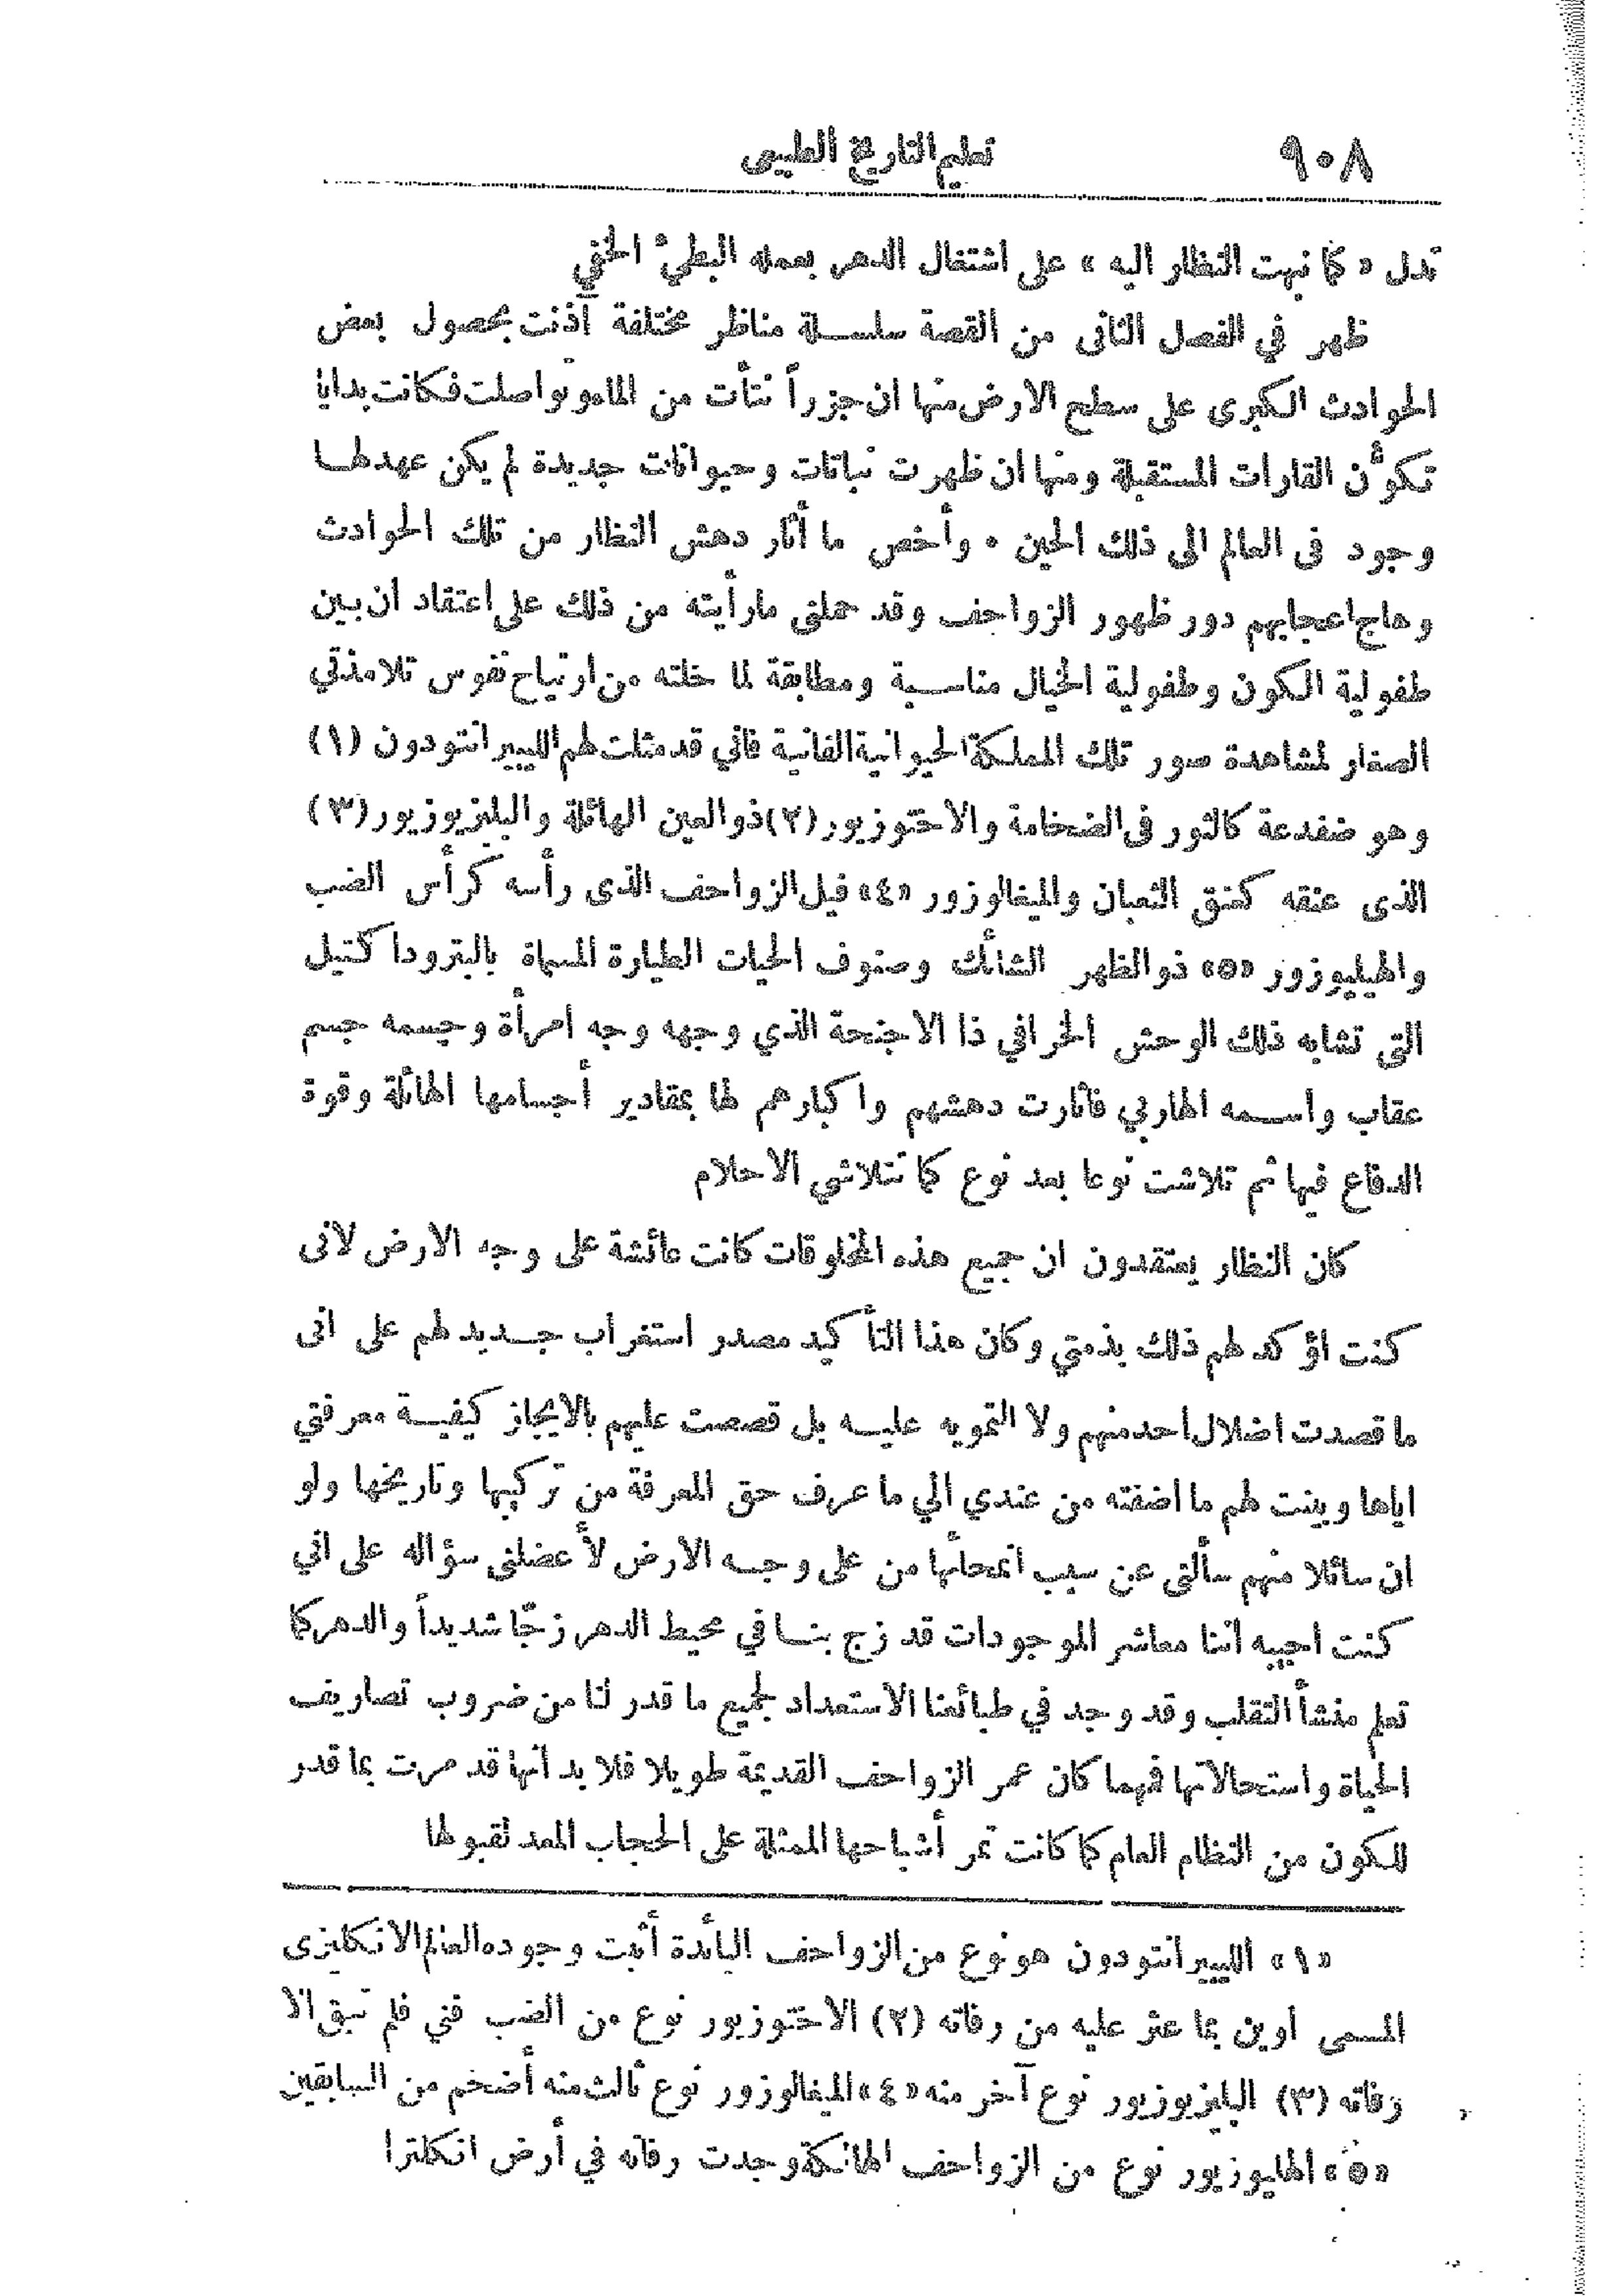 ٩٠٨
تعليم التاريخ الطبيعى
تدل « كما نبهت النظار اليه » على اشتغال الدهر بعمله البطيْ الخفي
ظهر في الفصل الثانى من القصة سلسلة مناظر مختلفة آذنت بحصول بعض
الحوادث الكبرى على سطح الارض منها ان جزراً نتأت من الماء وتواصلت فكانت بدايا
تكوُّن القارات المستقبلة ومنها ان ظهرت نباتات وحيوانات جديدة لم يكن عهد لها
وجود فى العالم الى ذلك الحين . وأخص ما أثار دهش النظار من تلك الحوادث
وهاج اعجابهم دور ظهور الزواحف وقد حملنى ما رأيته من ذلك على اعتقاد ان بين
طفولية الكون وطفولية الخيال مناسبة ومطابقة لما خلته من ارتياح نفوس تلامذتي
الصغار لمشاهدة صور تلك المملكة الحيوانية الفانية فاني قد مثلت لهم الليبيرانتودون (١)
وهو ضفدعة كالثور فى الضخامة والاختوزيور (٢) ذو العين الهائلة والبليزيوزيور (٣)
الذى عنقه كعنق الثعبان والميغالوزور «٤» فيل الزواحف الذى رأسه كرأس الضب
والهيليوزور «٥» ذو الظهر الشائك وصنوف الحيات الطيارة المسماة بالبترودا كتيل
التى تشابه ذلك الوحش الخرافي ذا الاجنحة الذي وجهه وجه امرأة وجسمه جسم
عقاب واسمه الهاربي فأثارت دهشهم واكبارهم لها بمقادير أجسامها الهائلة وقوة
الدفاع فيها ثم تلاشت نوعا بعد نوع كما تتلاشي الاحلام
كان النظار يعتقدون ان جميع هذه المخلوقات كانت عائشة على وجه الارض لانى
كنت اؤكد لهم ذلك بذمتي وكان هذا التأكيد مصدر استغراب جديد لهم على انى
ما قصدت اضلال احد منهم ولا التمويه عليه بل قصصت عليهم بالايجاز كيفية معرفتي
اياها وبينت لهم ما اضفته من عندي الي ما عرف حق المعرفة من تركيبها وتاريخها ولو
ان سائلا منهم سألنى عن سبب انمحائها من على وجه الارض لأعضلنى سؤاله على اني
كنت اجيبه اننا معاشر الموجودات قد زج بنا في محيط الدهر زجّا شديداً والدهر كما
تعلم منشأ التقلب وقد وجد في طبائعنا الاستعداد لجميع ما قدر لنا من ضروب تصاريف
الحياة واستحالاتها فمهما كان عمر الزواحف القديمة طويلا فلا بد انها قد مرت بما قدر
للكون من النظام العام كما كانت تمر أشباحها الممثلة على الحجاب المعد لقبولها
«١» الليبيرانتودون هو نوع من الزواحف البائدة أثبت وجوده العالم الانكليزى
المسمى أوين بما عثر عليه من رفاته (٢) الاختوزيور نوع من الضب فني فلم تبق الا
رفاته (٣) البليزيوزيور نوع آخر منه «٤» الميغالوزور نوع ثالث منه أضخم من السابقين
«٥» الهايوزيور نوع من الزواحف الهالكة وجدت رفاته في أرض انكلترا